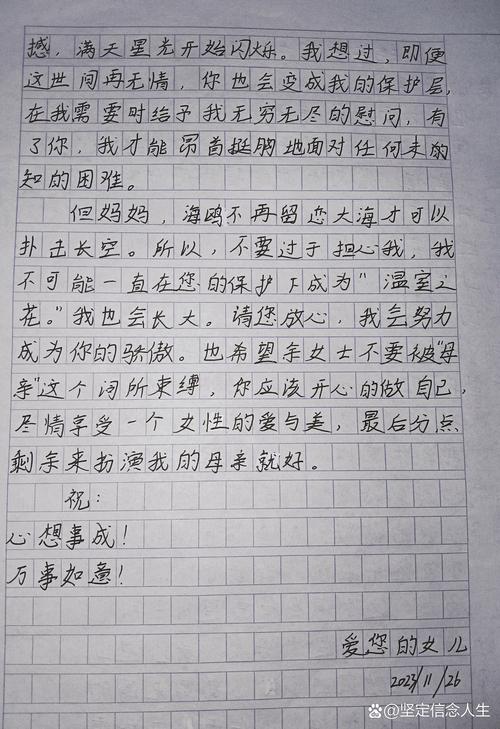 撼，满天星光开始闪烁。我想过，即便
这世间再无情，你也会变成我的保护层，
在我需要时给予我无穷无尽的慰问，有
了你，我才能昂首挺胸地面对任何未的
知的困难。
但妈妈，海鸥不再留恋大海才可以
扑击长空。所以，不要过于担心我，我
不可能一直在您的保护下成为“温室之
花。”我也会长大。请您放心，我会努力
成为你的骄傲。也希望余女士不要被“母
亲”这个词所束缚，你应该开心的做自己，
尽情享受一个女性的爱与美，最后分点
剩余来扮演我的母亲就好。
祝：
心想事成！
万事如意！
爱您的女儿
2023/11/26
坚定信念人生